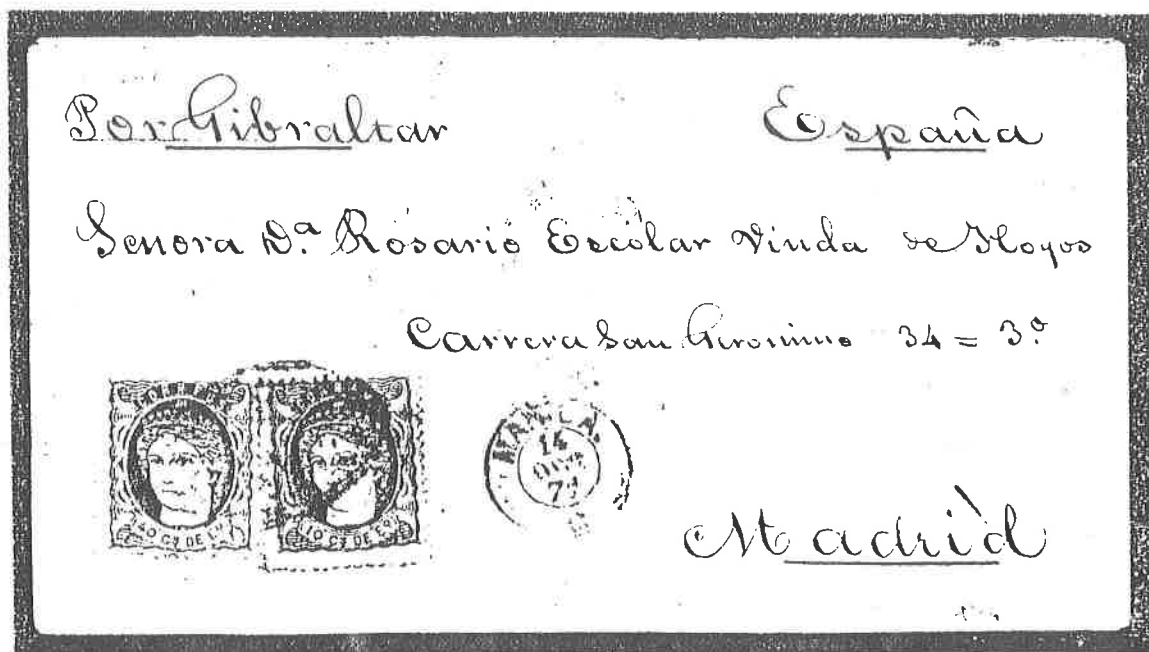 Por Gibraltar España
Senora D.ª Rosario Escolar Viuda de Hoyos
Carrera San Geronimo 34 = 3.º
MANILA
14
7
CS DE 10 CS DE
Madrid